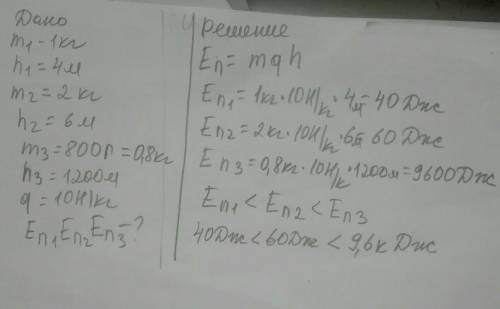 Дано
m1 - 1кг
h1 = 4м
m2 = 2кг
h2 = 6м
m3 = 800г = 0,8кг
h3 = 1200м
q = 10Н/кг
Eп1 Eп2 Eп3 - ?
Решение
Eп = mqh
Eп1 = 1кг · 10Н/кг · 4м = 40Дж
Eп2 = 2кг · 10Н/кг · 6м = 60Дж
Eп3 = 0,8кг · 10Н/к · 1200м = 9600Дж
Eп1 < Eп2 < Eп3
40Дж < 60Дж < 9,6кДж